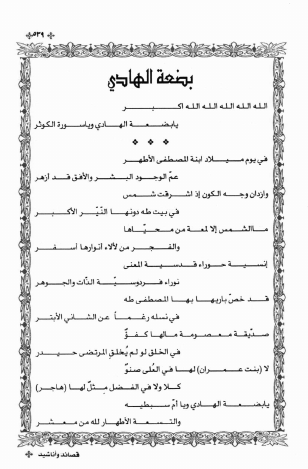 ٥٣٩
بضعة الهادي
الله الله الله الله الله اكبر
يابضعة الهادي وياسورة الكوثر
في يوم ميلاد ابنة المصطفى الأطهر
عمّ الوجود البشر والأفق قد ازهر
وازدان وجه الكون إذ اشرقت شمس
في بيت طه دونها النيّر الأكبر
ماالشمس إلا لمعة من محيّاها
والفجر من لألاء أنوارها أسفر
إنسية حوراء قدسية المعنى
نوراء فردوسيّة الذّات والجوهر
قد خصّ باريها بها المصطفى طه
في نسله رغماً عن الشاني الأبتر
صدّيقة معصومة مالها كفؤٌ
في الخلق لو لم يُخلقِ المرتضى حيدر
لا (بنت عمران) لها في العُلى صنوٌ
كلا ولا في الفضل مِثلٌ لها (هاجر)
يابضعة الهادي ويا أمّ سبطيه
والتسعة الأطهار لله من معشر
قصائد وأناشيد